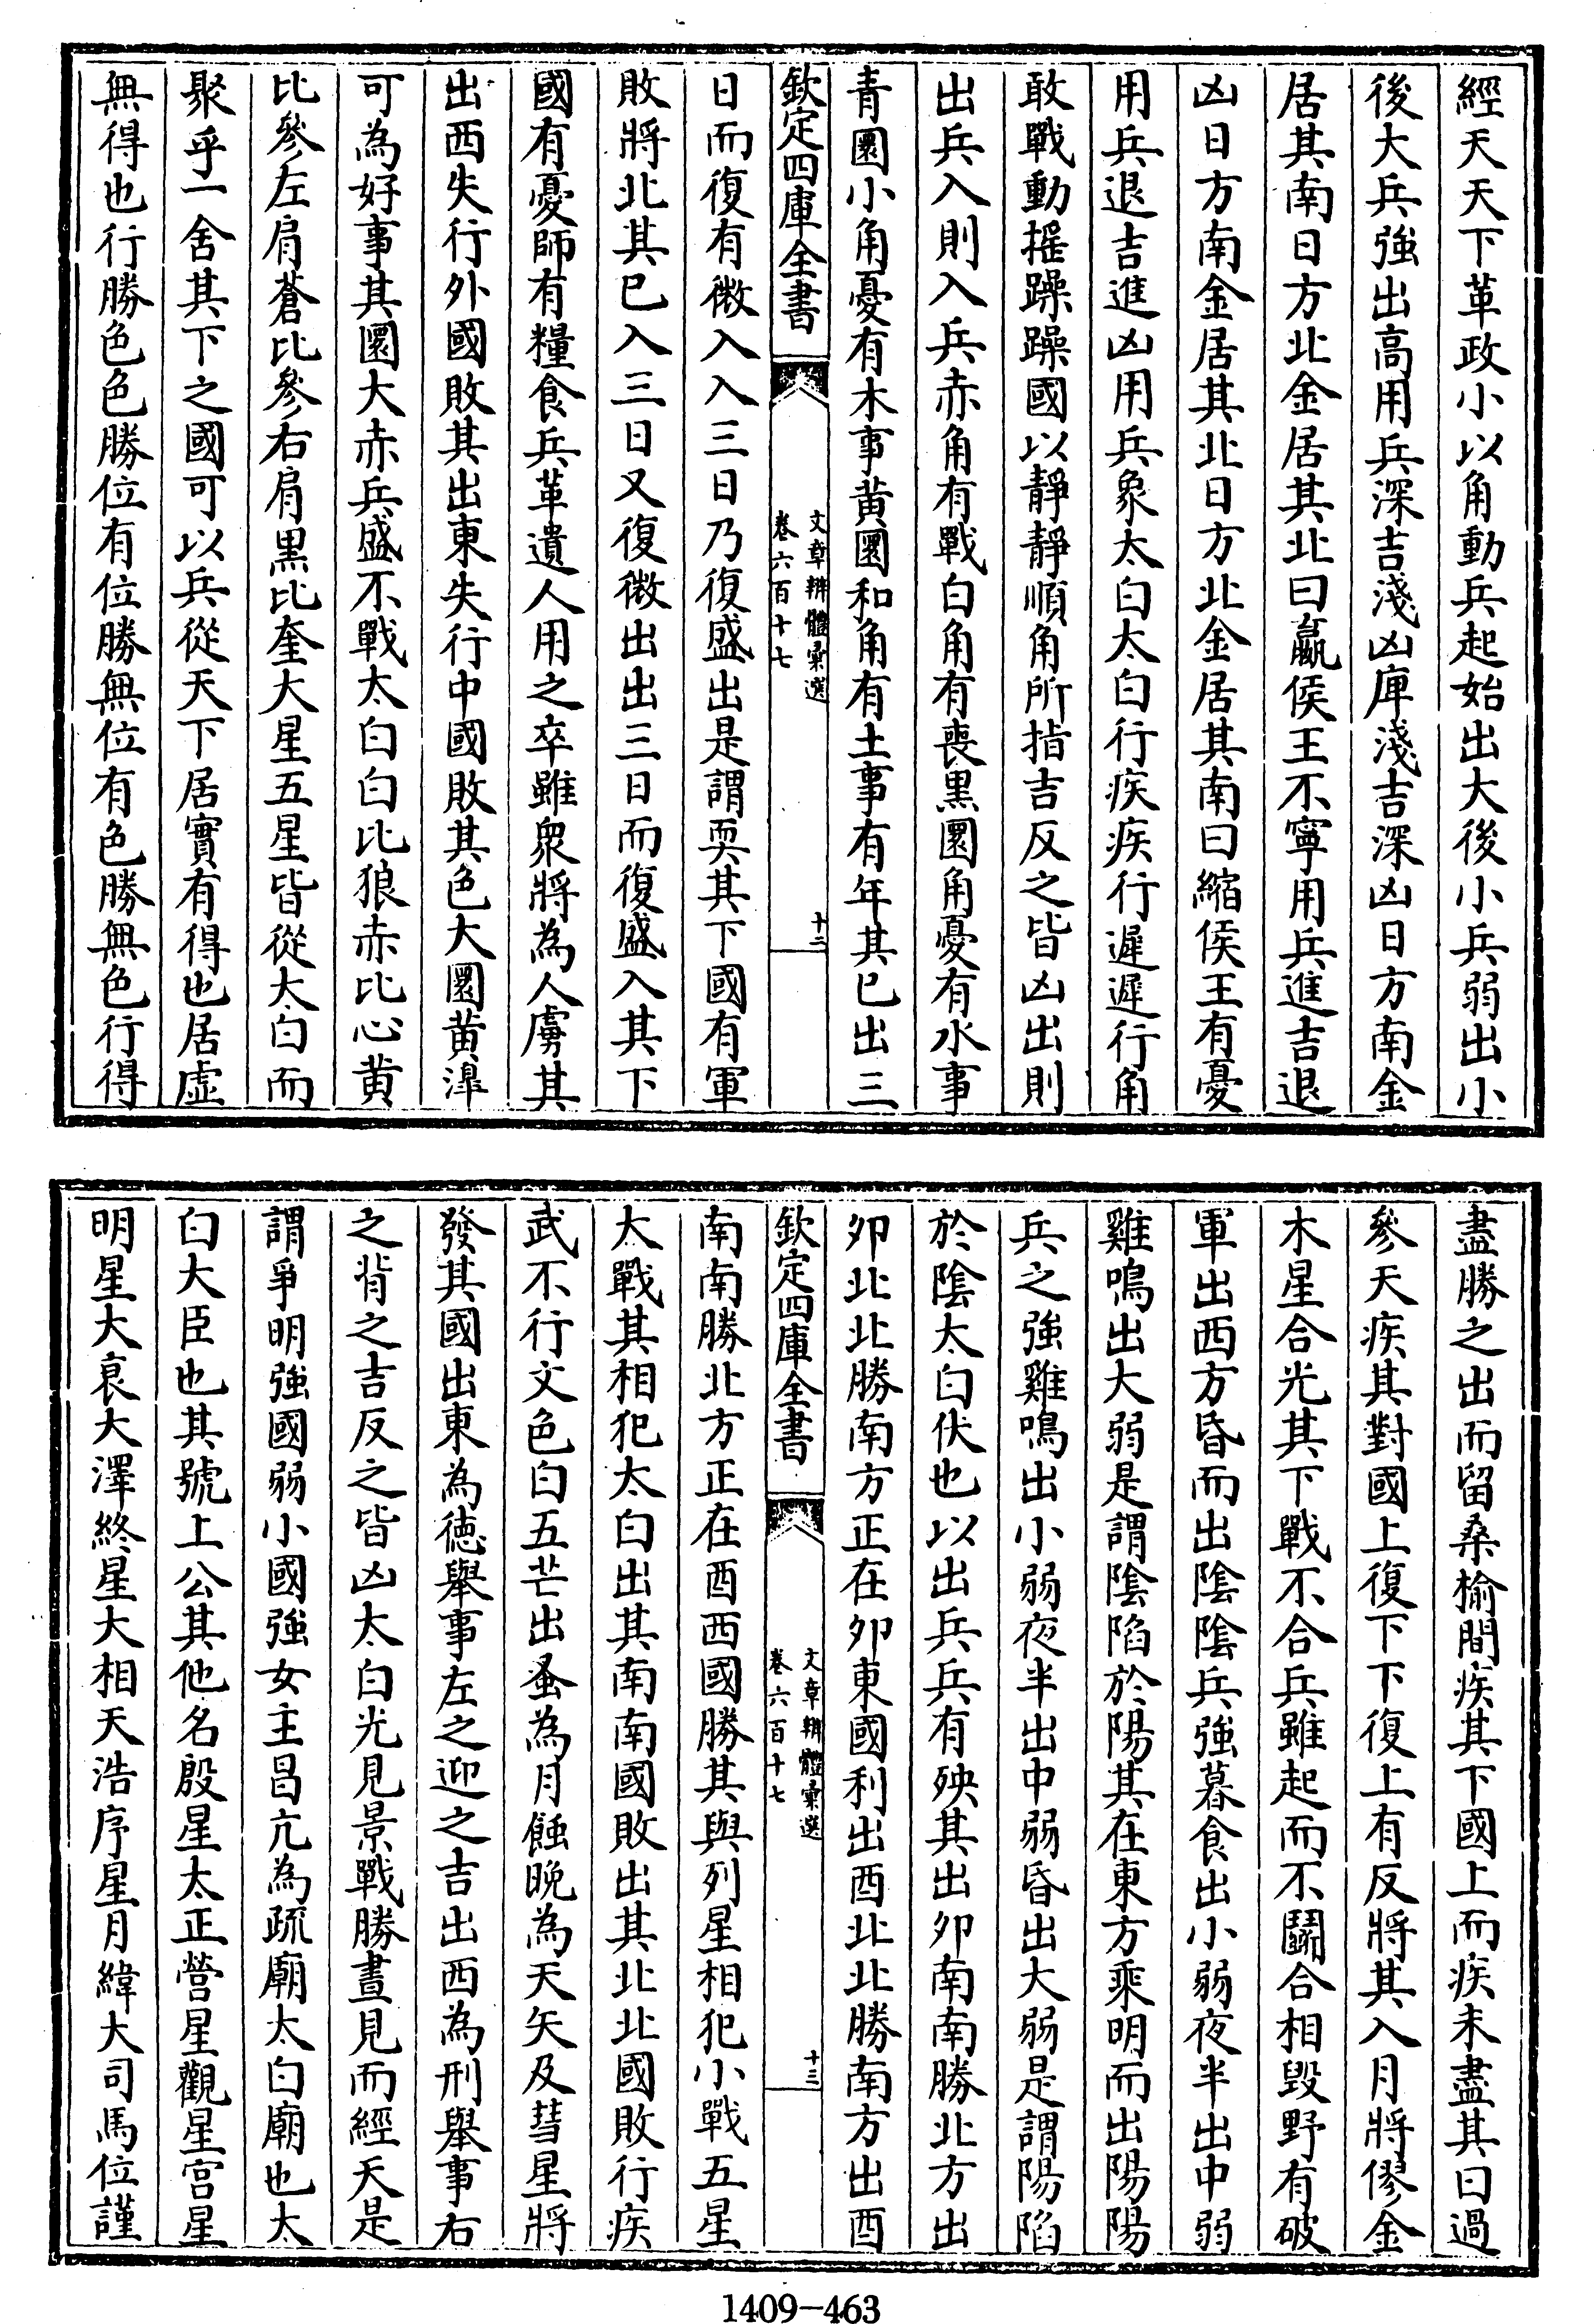 經天天下革政小以角動兵起始出大後小兵弱出小
後大兵強出高用兵深吉淺凶庳淺吉深凶日方南金
居其南日方北金居其北曰羸侯王不寧用兵進吉退
凶日方南金居其北日方北金居其南曰縮侯王有憂
用兵退吉進凶用兵象太白太白行疾疾行遲遲行角
敢戰動搖躁躁國以靜靜順角所指吉反之皆凶出則
出兵入則入兵赤角有戰白角有喪黑圜角憂有水事
青圜小角憂有木事黄圜和角有土事有年其已出三
欽定四庫全書
文章辨體彙選
卷六百十七
十二
日而復有微入入三日乃復盛出是謂耎其下國有軍
敗將北其已入三日又復微出出三日而復盛入其下
國有憂師有糧食兵革遺人用之卒雖衆將為人虜其
出西失行外國敗其出東失行中國敗其色大圜黄滜
可為好事其圜大赤兵盛不戰太白白比狼赤比心黄
比參左肩蒼比參右肩黑比奎大星五星皆從太白而
聚乎一舍其下之國可以兵從天下居實有得也居虛
無得也行勝色色勝位有位勝無位有色勝無色行得
盡勝之出而留桑榆間疾其下國上而疾未盡其日過
參天疾其對國上復下下復上有反將其入月將僇金
木星合光其下戰不合兵雖起而不鬬合相毁野有破
軍出西方昏而出陰陰兵強暮食出小弱夜半出中弱
雞鳴出大弱是謂陰陷於陽其在東方乘明而出陽陽
兵之強雞鳴出小弱夜半出中弱昏出大弱是謂陽陷
於陰太白伏也以出兵兵有殃其出卯南南勝北方出
卯北北勝南方正在卯東國利出酉北北勝南方出酉
欽定四庫全書
文章辨體彙選
卷六百十七
十三
南南勝北方正在酉西國勝其與列星相犯小戰五星
太戰其相犯太白出其南南國敗出其北北國敗行疾
武不行文色白五芒出蚤為月蝕晚為天矢及彗星將
發其國出東為德舉事左之迎之吉出西為刑舉事右
之背之吉反之皆凶太白光見景戰勝晝見而經天是
謂爭明強國弱小國強女主昌亢為疏廟太白廟也太
白大臣也其號上公其他名殷星太正營星觀星宫星
明星大衰大澤終星大相天浩序星月緯大司馬位謹
1409-463